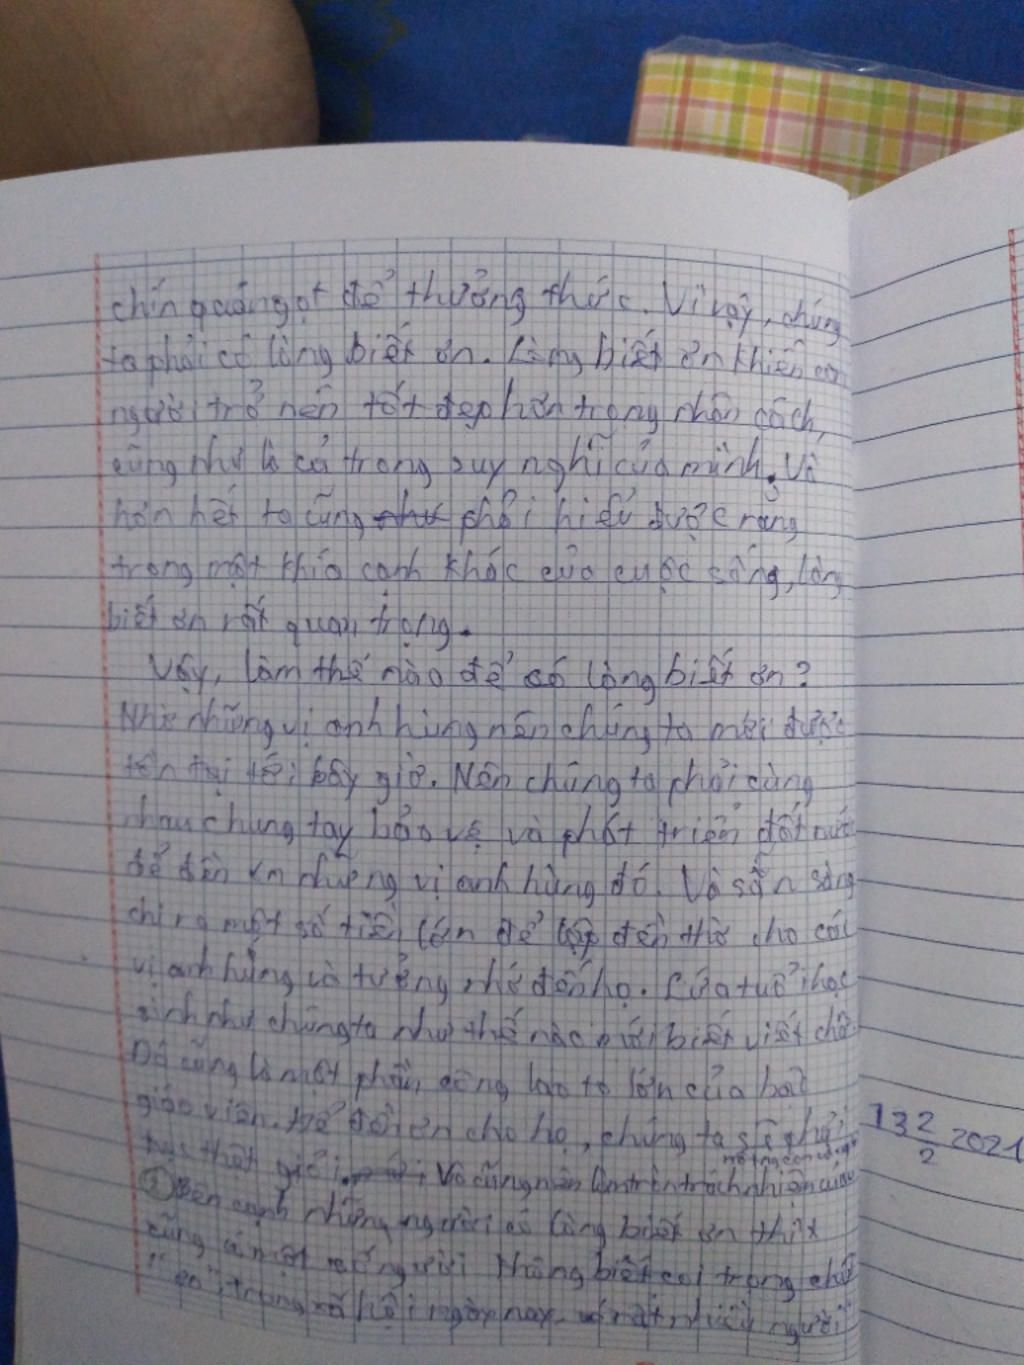 chín quả ngọt để thưởng thức. Vì vậy, chúng
ta phải có lòng biết ơn. Lòng biết ơn khiến con
người trở nên tốt đẹp hơn trong nhân cách,
cũng như là cả trong suy nghĩ của mình. Và
hơn hết ta cũng như phải hiểu được rằng
trong một khía cạnh khác của cuộc sống, lòng
biết ơn rất quan trọng.
Vậy, làm thế nào để có lòng biết ơn?
Nhờ những vị anh hùng nên chúng ta mới được
tồn tại tới bây giờ. Nên chúng ta phải cùng
nhau chung tay bảo vệ và phát triển đất nước
để đền ơn những vị anh hùng đó. Và sẵn sàng
chi ra một số tiền lớn để lập đền thờ cho các
vị anh hùng và tưởng nhớ đến họ. Lứa tuổi học
sinh như chúng ta như thế nào mới biết viết chữ.
Đó cũng là một phần công lao to lớn của
giáo viên. Để đền ơn cho họ, chúng ta sẽ phải
thật giỏi. Và cũng nên làm tròn trách nhiệm của
một người con
② Bên cạnh những người có lòng biết ơn thì
cũng có một số người không biết coi trọng chữ
"ơn", trong xã hội ngày nay, có rất nhiều người
132
2 2021